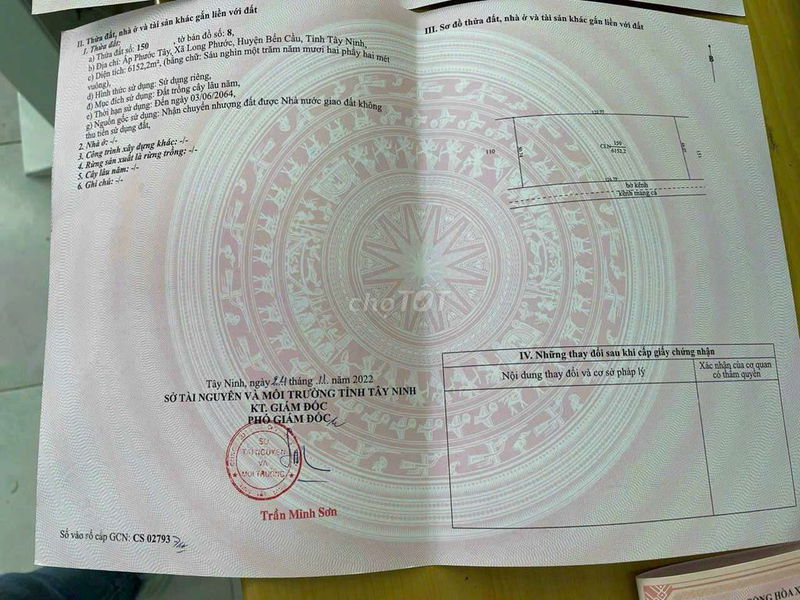 II. Thửa đất, nhà ở và tài sản khác gắn liền với đất
1. Thửa đất:
a) Thửa đất số: 150 , tờ bản đồ số: 8,
b) Địa chỉ: Ấp Phước Tây, Xã Long Phước, Huyện Bến Cầu, Tỉnh Tây Ninh,
c) Diện tích: 6152,2m², (bằng chữ: Sáu nghìn một trăm năm mươi hai phẩy hai mét
vuông),
d) Hình thức sử dụng: Sử dụng riêng,
đ) Mục đích sử dụng: Đất trồng cây lâu năm,
e) Thời hạn sử dụng: Đến ngày 03/06/2064,
g) Nguồn gốc sử dụng: Nhận chuyển nhượng đất được Nhà nước giao đất không
thu tiền sử dụng đất,
2. Nhà ở: -/-
3. Công trình xây dựng khác: -/-
4. Rừng sản xuất là rừng trồng: -/-
5. Cây lâu năm: -/-
6. Ghi chú: -/-
Tây Ninh, ngày 24 tháng 11 năm 2022
SỞ TÀI NGUYÊN VÀ MÔI TRƯỜNG TỈNH TÂY NINH
KT. GIÁM ĐỐC
PHÓ GIÁM ĐỐC
SỞ
TÀI NGUYÊN
VÀ
MÔI TRƯỜNG
Trần Minh Sơn
Số vào sổ cấp GCN: CS 02793
III. Sơ đồ thửa đất, nhà ở và tài sản khác gắn liền với đất
B
110
CLN
150
6152,2
bờ kênh
kênh máng cá
choTỐT
IV. Những thay đổi sau khi cấp giấy chứng nhận
Nội dung thay đổi và cơ sở pháp lý
Xác nhận của cơ quan
có thẩm quyền